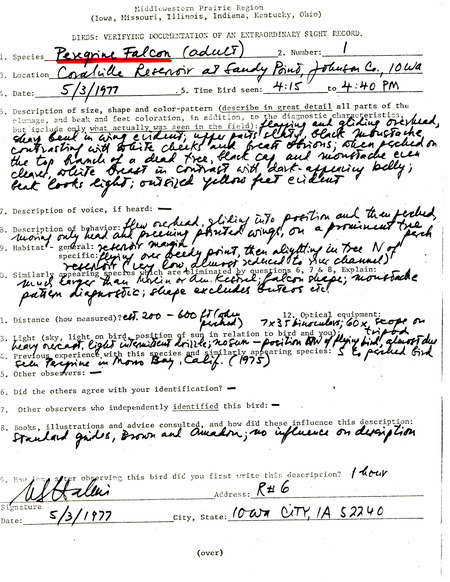 Middlewestern Prairie Region
(Iowa, Missouri, Illinois, Indiana, Kentucky, Ohio)
BIRDS: VERIFYING DOCUMENTATION OF AN EXTRAORDINARY SIGHT RECORD.
1. Species Peregrine Falcon (adult) 2. Number: 1
3. Location Coralville Reservoir at Sandy Point, Johnson Co., IOWA
4. Date: 5/3/1977 5. Time Bird seen: 4:15 to 4:40 PM
6. Description of size, shape and color-pattern (describe in great detail all parts of the
plumage, and beak and feet coloration, in addition to the diagnostic characteristics,
but include only what actually was seen in the field): flapping and gliding overhead,
sharp bend in wing evident; upper parts slaty, black moustache
contrasting with white cheeks and breast obvious; when perched on
the top branch of a dead tree, black cap and moustache even
clearer, white breast in contrast with dark-appearing belly;
beak looks light; outsized yellow feet evident
7. Description of voice, if heard: —
8. Description of behavior: flew overhead, gliding into position and then perched,
moving only head and preening pointed wings, on a prominent tree
perch
9. Habitat - general: reservoir margin
specific: flying over Sandy Point, then alighting in tree N of
reservoir (very low almost reduced to river channel)
0. Similarly appearing species which are eliminated by questions 6, 7 & 8, Explain:
much larger than Merlin or Am. Kestrel; falcon shape; moustache
pattern diagnostic; shape excludes buteos etc.
1. Distance (how measured)? est. 200 - 600 ft (when
perched) 12. Optical equipment:
7 x 35 binoculars; 60 x scope on
tripod
3. Light (sky, light on bird, position of sun in relation to bird and you):
heavy overcast, light intermittent drizzle; no sun - position of flying bird, almost due
S to perched bird
4. Previous experience with this species and similarly appearing species:
seen Peregrine in Morro Bay, Calif. (1975)
5. Other observers: —
6. Did the others agree with your identification? —
7. Other observers who independently identified this bird: —
8. Books, illustrations and advice consulted, and how did these influence this description:
standard guides, Brown and Amadon; no influence on description
9. How long after observing this bird did you first write this description? 1 hour
Address: R # 6
Signature
Date: 5/3/1977 City, State: IOWA CITY, IA 52240
(over)